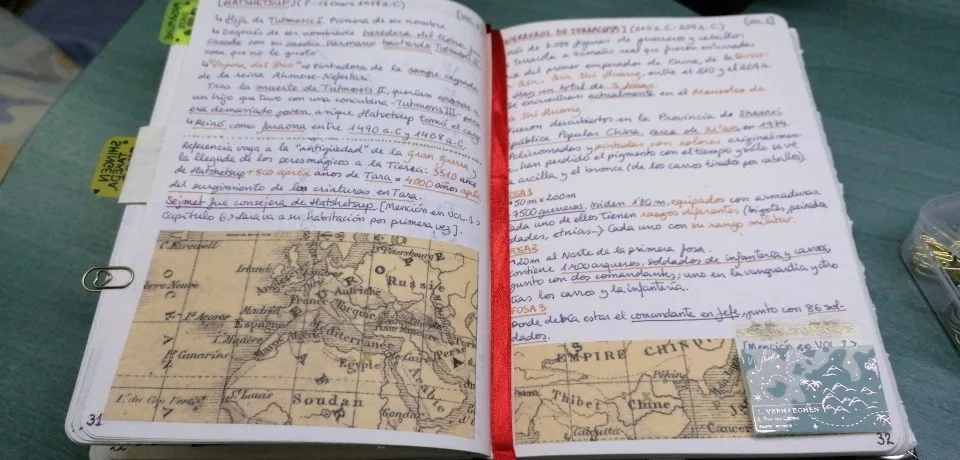 [HATSHETSUP] (
[VOL.
↳ Hija de Tutmosis I. Primera de su nombre.
↳ Después de ser nombrada heredera del trono, fue
casada con su medio hermano bastardo Tutmosis II
cosa que no le gustó.
"Esposa del Dios" → Portadora de la sangre sagrada
de la reina Ahmose-Nefertari.
Tras la muerte de Tutmosis II, querían
un hijo que tuvo con una concubina - Tutmosis III, pero
era demasiado joven así que Hatshetsup tomó el cargo
↳ Reinó como faraona entre 1490 a.C y 1468 a.C
Referencia vaga a la "antigüedad" de la gran guerra y
la llegada de los peresmágicos a la Tierra: 3510 años
de Hatshetsup +500 aprox años de Tara = 4000 años aprox
del surgimiento de las criaturas en Tara.
Sejmet fue consejera de Hatshetsup. [Mención en VOL. 1 >
Capítulo 6 > lleva a su habitación por primera vez].
31
GUERREROS DE TERRACOTA] (210 a.C - 209 a.C.)
[VOL.
de figuras de guerreros y caballos
terracota a tamaño real que fueron enterrados
del primer emperador de China, de la Dinas-
Qin, Qin Shi Huang, entre el 210 y el 209 a.
Hay un total de 3 fosas.
se encuentran actualmente en el Mausoleo de
Shi Huang
Fueron descubiertos en la Provincia de Shaanxi
República Popular China, cerca de Xi'an en 1974
Policromados y pintados con colores originalmente
han perdido el pigmento con el tiempo y sólo se ve
arcilla y el bronce (de los carros tirados por caballos).
FOSA 1
50m x 200m
7500 guerreros. Miden 1'80 m, equipados con armaduras
Cada uno de ellos tienen rasgos diferentes (bigotes, peinados
edades, etnias...) Cada uno con su rango militar.
FOSA 2
20m al Norte de la primera fosa.
Contiene 1.400 arqueros, soldados de infantería y carros,
junto con dos comandantes; uno en la vanguardia y otro
tras los carros y la infantería.
FOSA 3
Donde debía estar el comandante en jefe, junto con 86 sol-
dados.
[Mención en VOL. 2 >
32
Petersbourg
Irlande
Londres
Russie
France
Autriche
Turquie
Madrid
Espagne
I. Açores
I. Madère
Maroc
Méditerranée
Is Canaries
Egypte
Is du Cap Verts
St Louis
Soudan
Gondar
EMPIRE CHIN
Pékin
Thibet
Chine
Calcutta
Canton
1. VERHAEGHEN